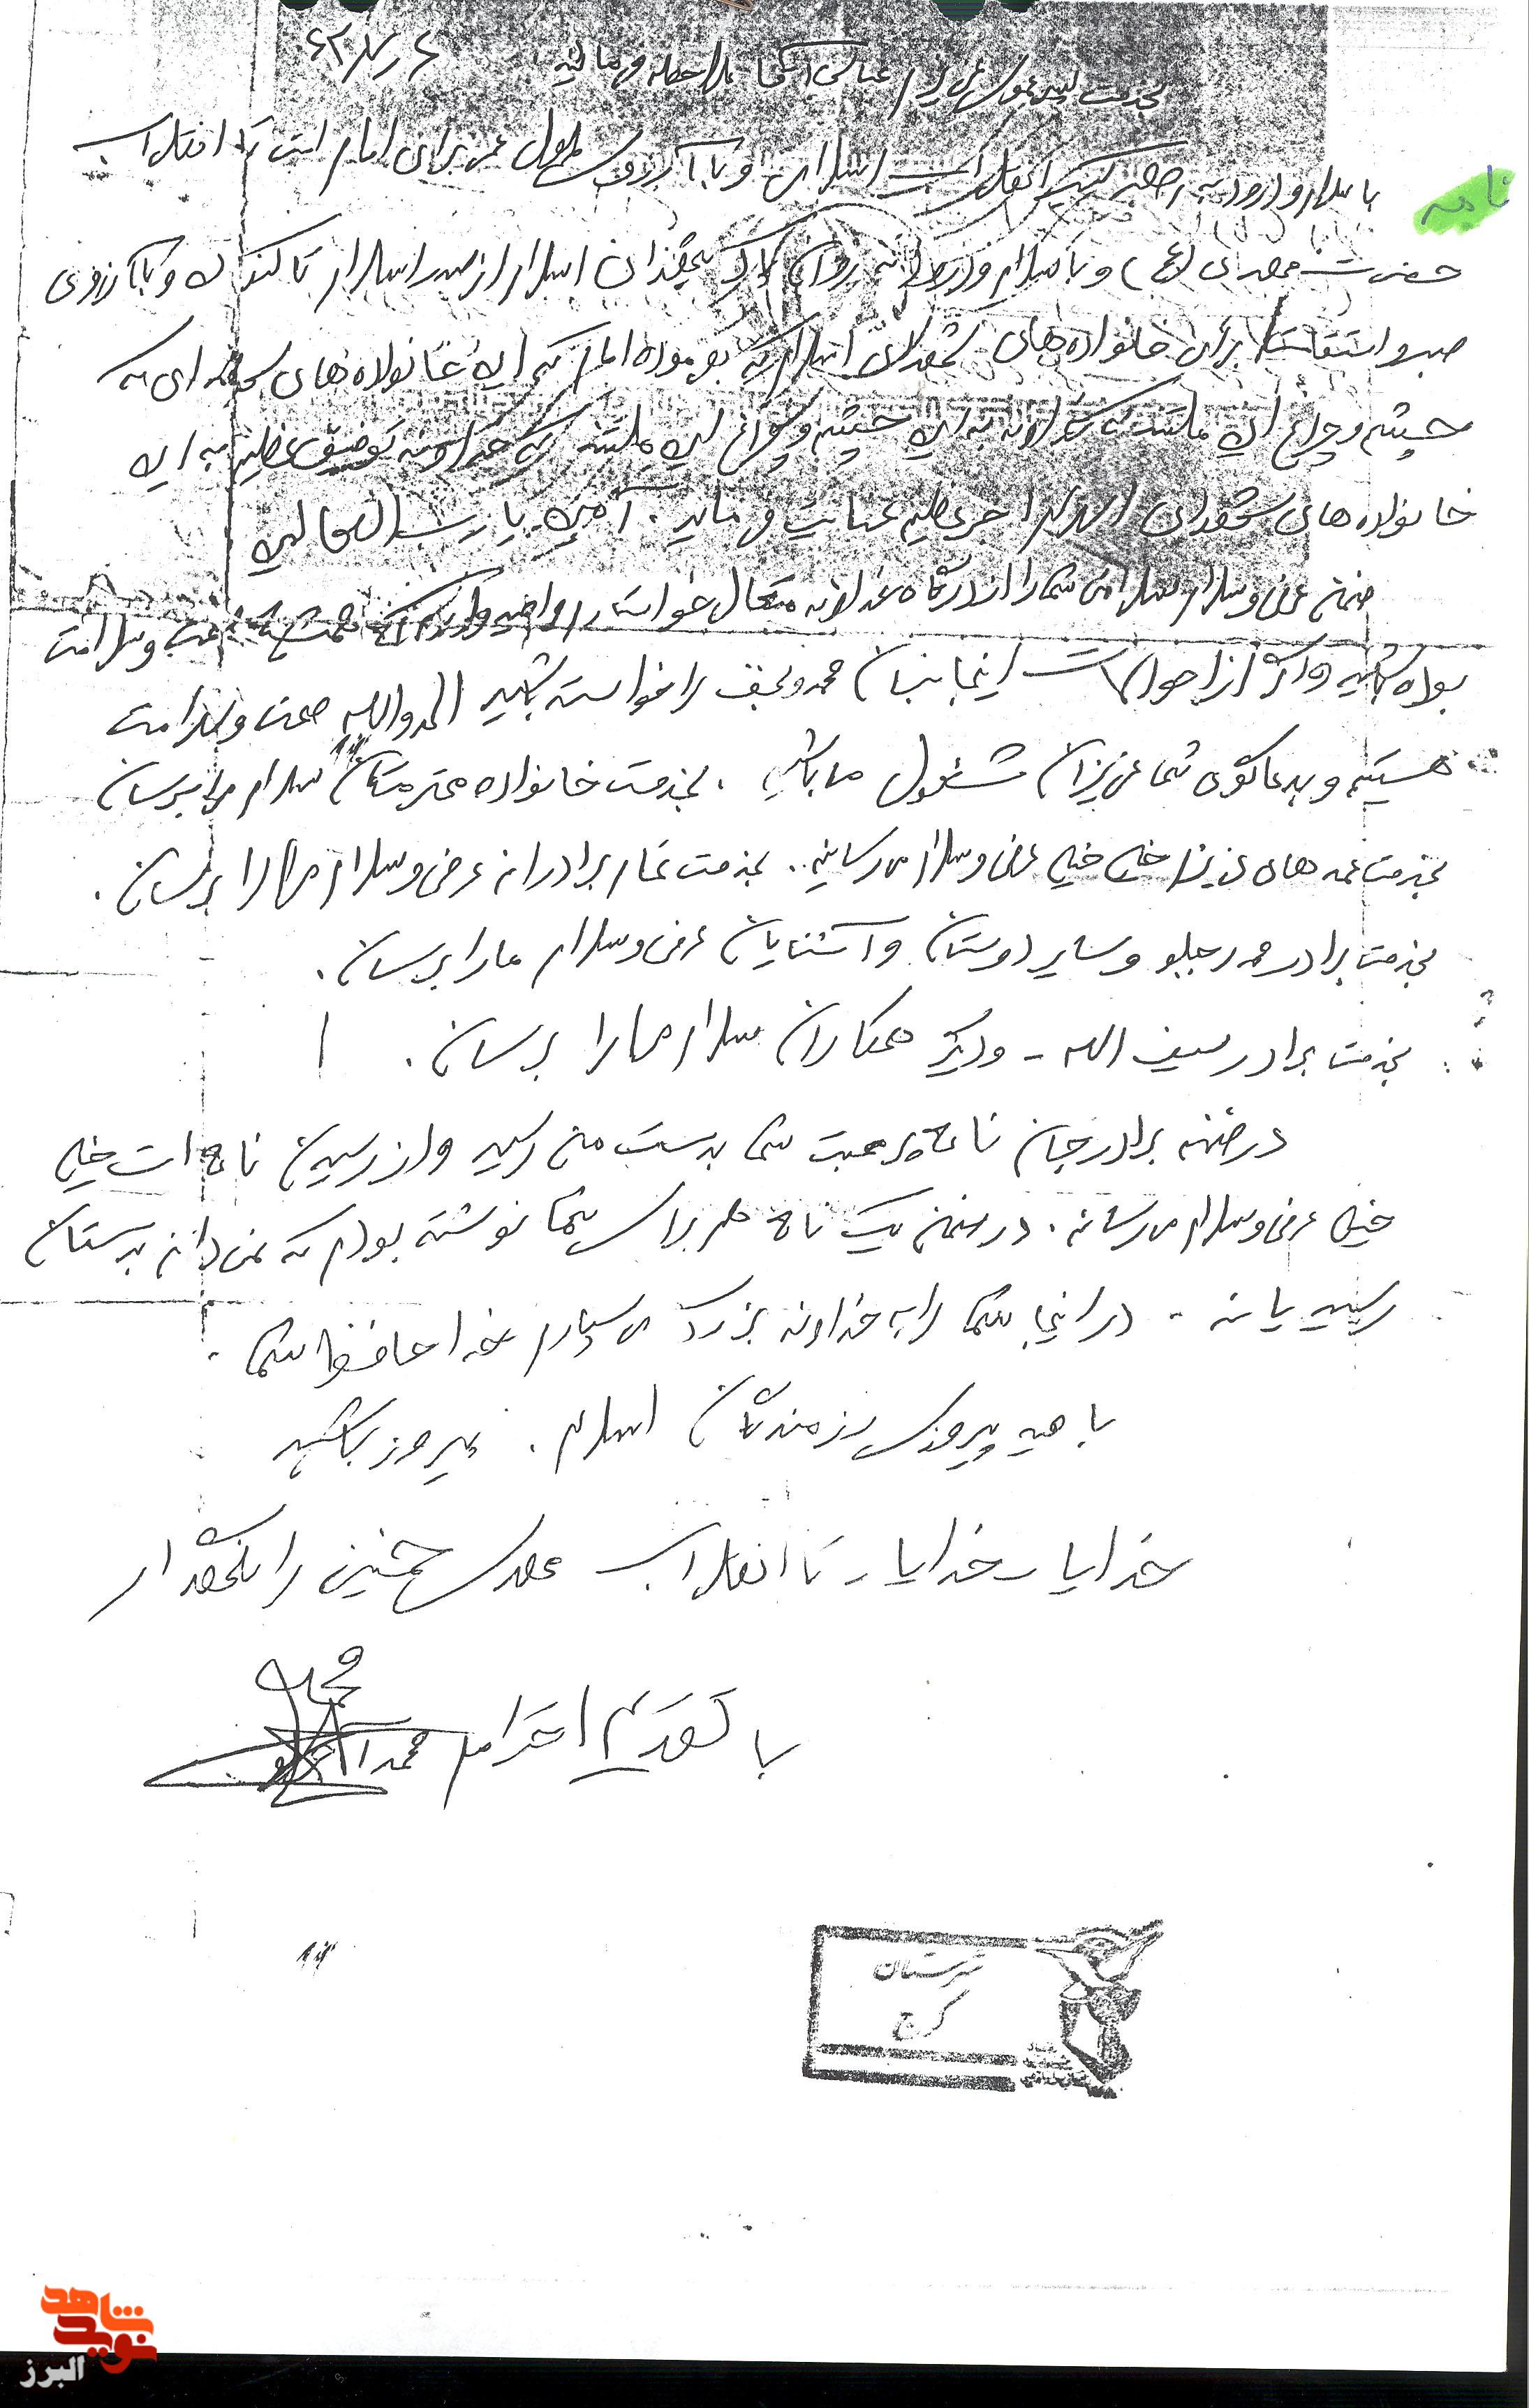 ۶۲/۷/۶
بخدمت پسر عموی عزیزم عباس آقا ملاحظه فرمائید
نامه
با سلام و درود به رهبر کبیر انقلاب اسلامی و با آرزوی طول عمر برای امام امت تا انقلاب
حضرت مهدی (عج) و با سلام و درود به روان پاک شهیدان اسلام از صدر اسلام تا کنون و با آرزوی
صبر و استقامت برای خانواده های شهدای اسلام که بفرموده امام که این خانواده های شهدا که
چشم و چراغ این ملتند که خداوند به این چشم و چراغ این ملتند که خداوند توفیق عظیم به این
خانواده های شهدای اسلام اجر عظیم عنایت فرماید. آمین یا رب العالمین
ضمن عرض و سلام سلامتی شما را از درگاه خداوند متعال خواستارم و امیدوارم که صحت و سلامت
بوده باشید و اگر از احوالات اینجانبان محمد و نجف را خواسته باشید الحمدوالله صحت و سلامت
هستیم و بدعاگوی شما عزیزان مشغول میباشیم. بخدمت خانواده محترمتان سلام مرا برسان
بخدمت عمه های عزیزم خیلی خیلی عرض و سلام میرسانیم. بخدمت عمار برادرانه عرض و سلام ما را برسان.
بخدمت برادر محمد رجبلو و سایر دوستان و آشنایان عرض و سلام ما را برسان.
بخدمت برادر سیف الله - و دیگر همکاران سلام ما را برسان.
در ضمن برادر جان نامه پر محبت شما بدست من رسید و از رسیدن نامه ات خیلی
خیلی عرض و سلام میرسانم. در ضمن یک نامه هم برای شما نوشته بودم که نمی دانم بدستتان
رسید یا نه - در اینجا شما را به خداوند بزرگ می سپارم خدا حافظ شما.
با امید پیروزی رزمندگان اسلام. پیروز باشید
خدایا - خدایا - تا انقلاب مهدی خمینی را نگهدار
با تقدیم احترام محمد
محمد
شهرستان
کرج
نوید شاهد
البرز